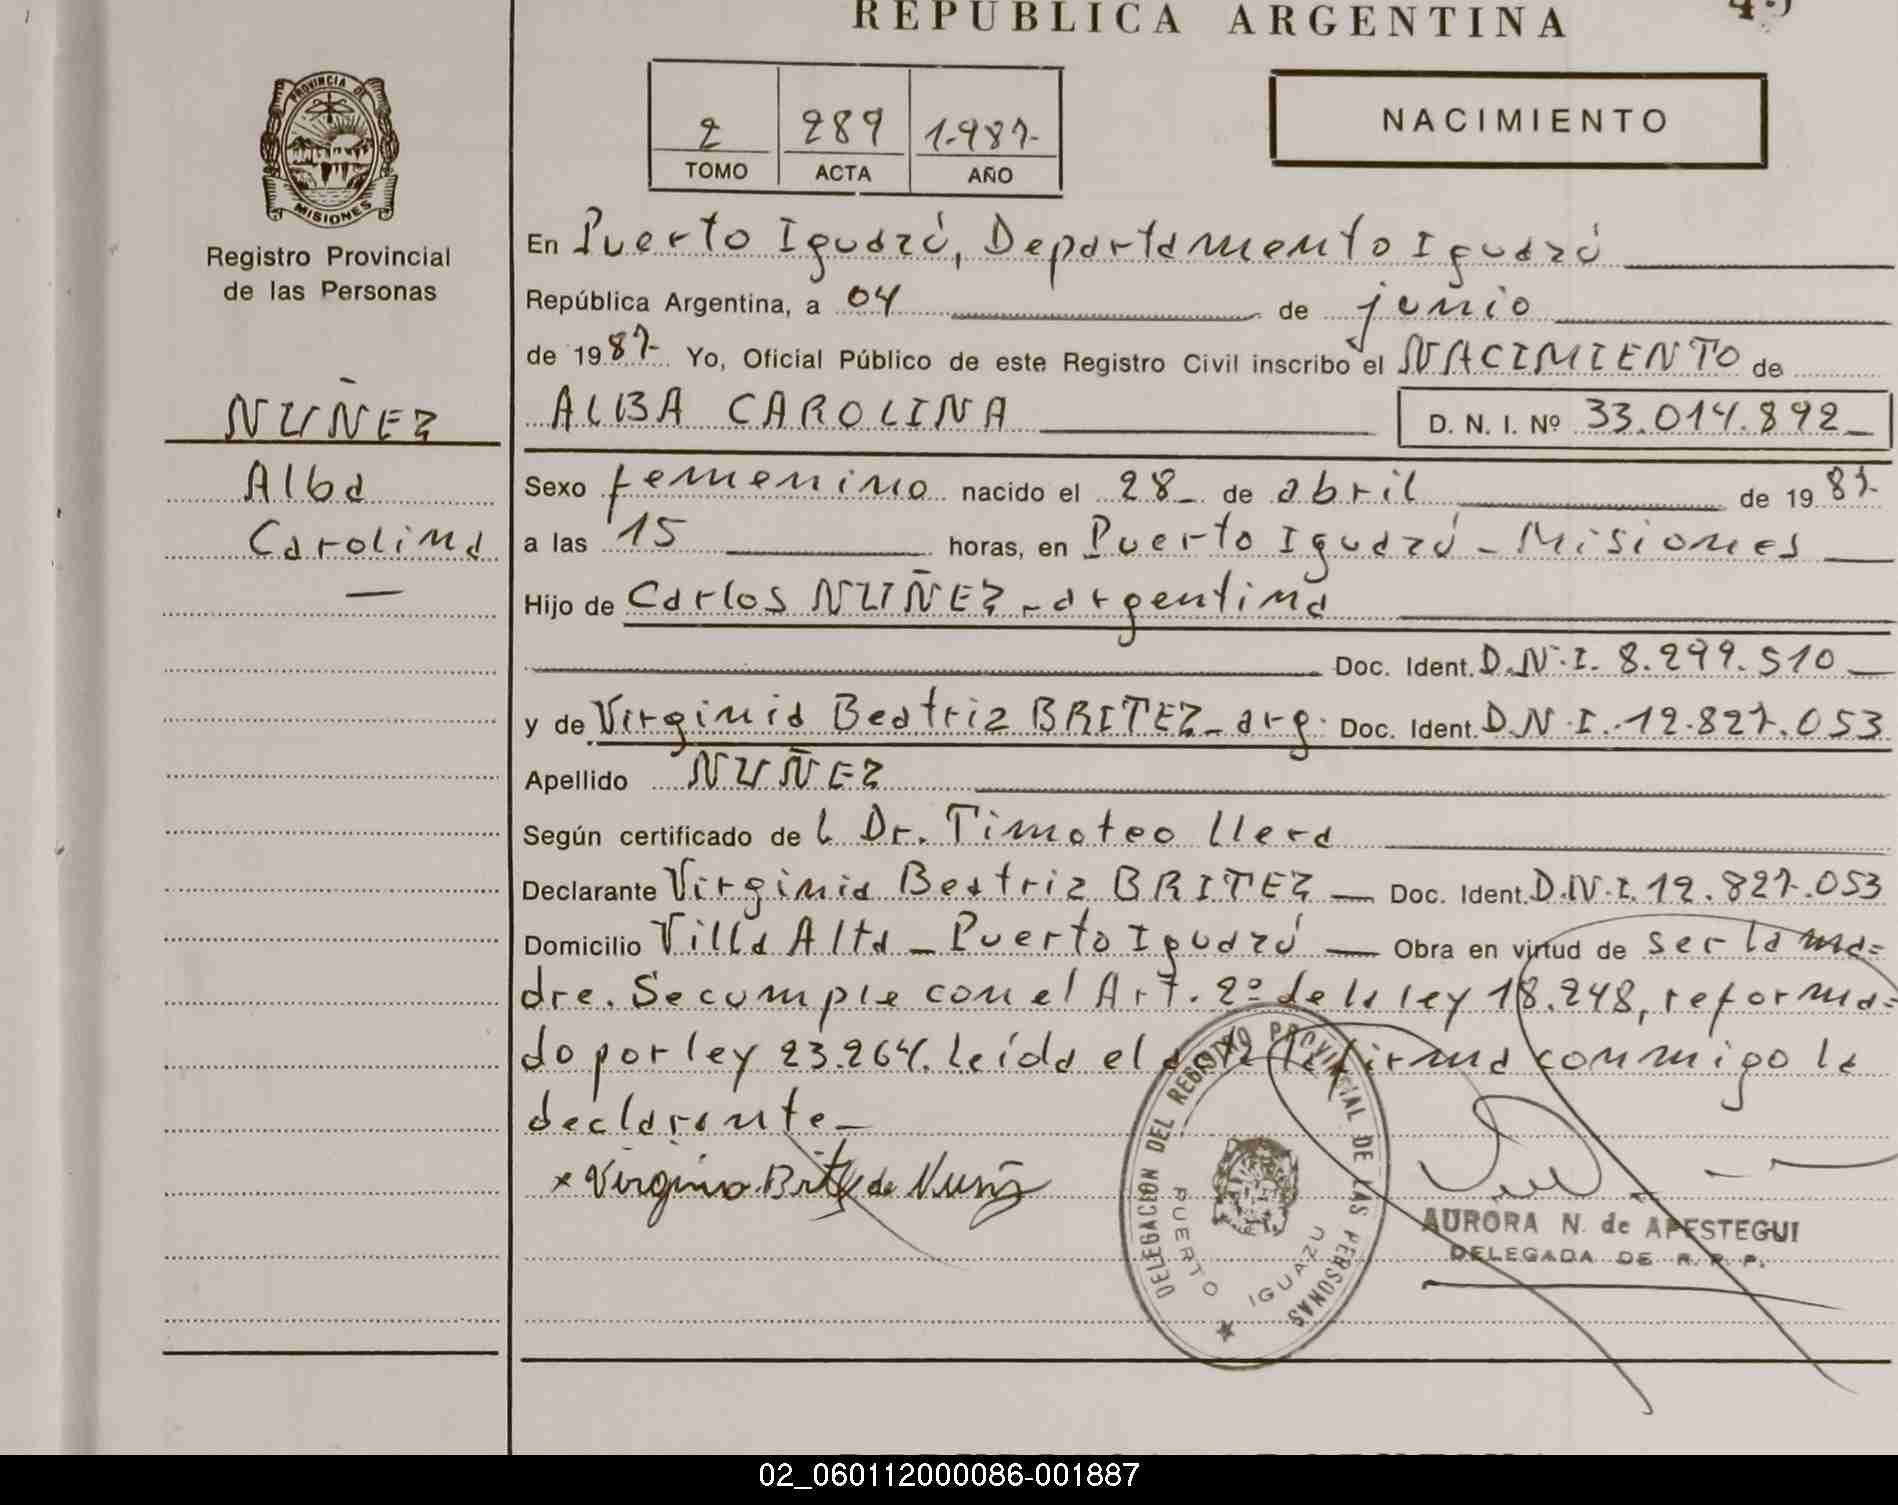 REPUBLICA ARGENTINA
PROVINCIA DE
MISIONES
Registro Provincial
de las Personas
NUÑEZ
Alba
Carolina
2 289 1.987-
TOMO ACTA AÑO
NACIMIENTO
En Puerto Iguazú, Departamento Iguazú
República Argentina, a 04 de junio
de 1987- Yo, Oficial Público de este Registro Civil inscribo el NACIMIENTO de
ALBA CAROLINA D. N. I. Nº 33.014.892
Sexo femenino nacido el 28 de abril de 1987-
a las 15 horas, en Puerto Iguazú - Misiones
Hijo de Carlos NUÑEZ - argentina
Doc. Ident. D.N.I. 8.299.510
y de Virginia Beatriz BRITEZ - arg. Doc. Ident. D.N.I. 12.827.053
Apellido NUÑEZ
Según certificado de l Dr. Timoteo Llera
Declarante Virginia Beatriz BRITEZ Doc. Ident. D.N.I. 12.827.053
Domicilio Villa Alta - Puerto Iguazú Obra en virtud de ser la ma=
dre. Se cumple con el Art. 2º de la ley 18.248, reforma=
do por ley 23.264. Leída el acta la firma conmigo la
declarante -
x Virginia Britez de Nuñez
DELEGACION DEL REGISTRO PROVINCIAL DE LAS PERSONAS
PUERTO IGUAZU
AURORA N. de APESTEGUI
DELEGADA DE R. P. P.
02_060112000086-001887